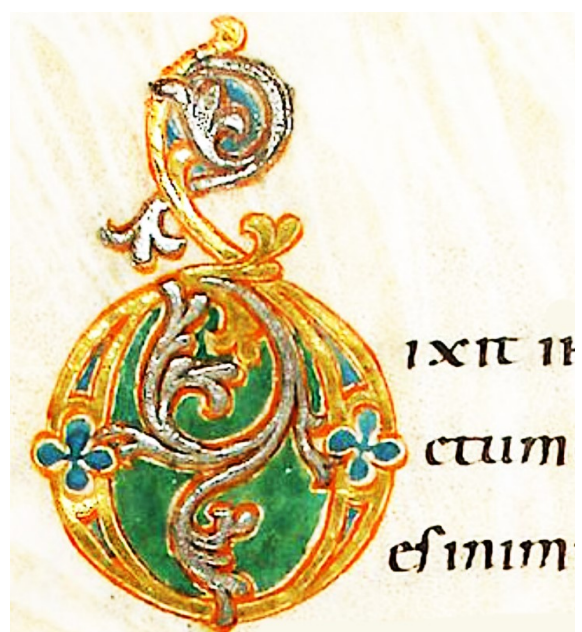 Dixit ih
ctum
es inim